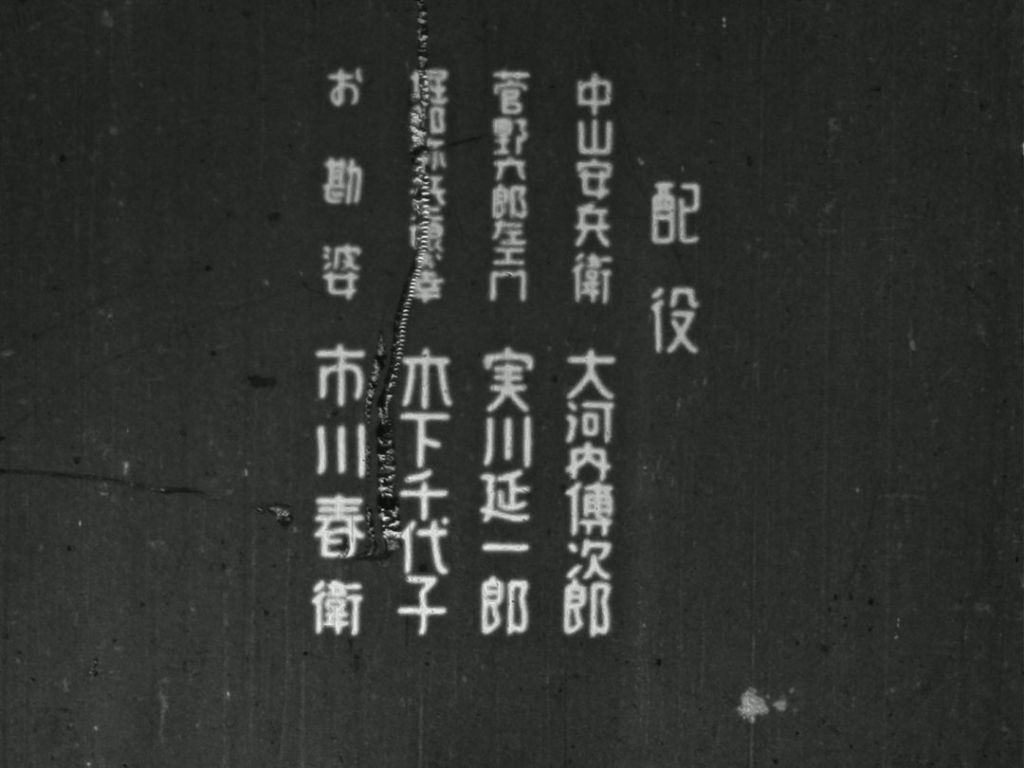 配役
中山安兵衛 大河内傳次郎
菅野六郎左エ門 実川延一郎
木下千代子
お勘婆 市川春衛